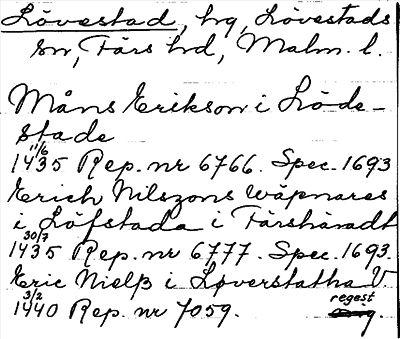 Lövestad, hg, Lövestads
sn, Färs hd, Malm. l.
Måns Erikson i Löde-
stade
11/6
1435 Rep. nr 6766. Spec. 1693
Erich Nilszons wäpnares
i Löfstada i Färshäradt
30/7
1435 Rep. nr 6777. Spec. 1693.
Eric Nielß i Løverstatha V
3/2 regest
1440 Rep. nr 7059.